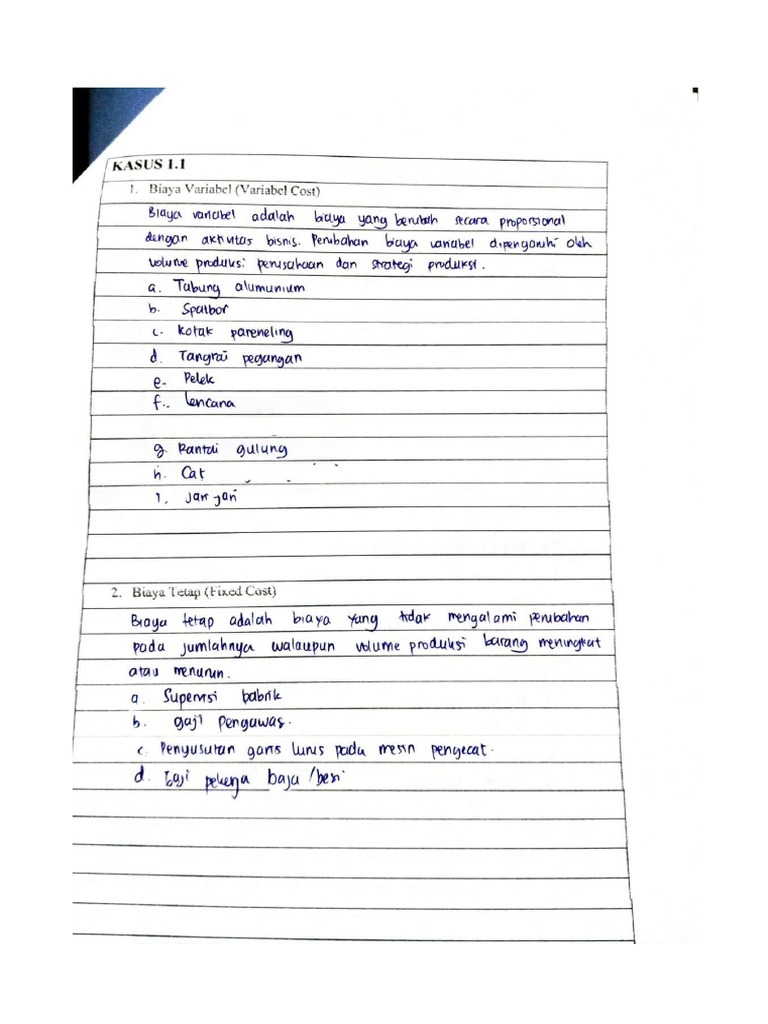 KASUS 1.1
1. Biaya Variabel (Variabel Cost)
Biaya variabel adalah biaya yang berubah secara proporsional
dengan aktivitas bisnis. Perubahan biaya variabel dipengaruhi oleh
volume produksi perusahaan dan strategi produksi.
a. Tabung alumunium
b. Spatbor
c. Kotak pareneling
d. Tangkai pegangan
e. Pelek
f. Lencana
g. Rantai gulung
h. Cat
i. Jari-jari
2. Biaya Tetap (Fixed Cost)
Biaya tetap adalah biaya yang tidak mengalami perubahan
pada jumlahnya walaupun volume produksi barang meningkat
atau menurun.
a. Supervisi pabrik
b. gaji Pengawas.
c. Penyusutan garis lurus pada mesin pengecat.
d. Gaji pekerja baja/besi